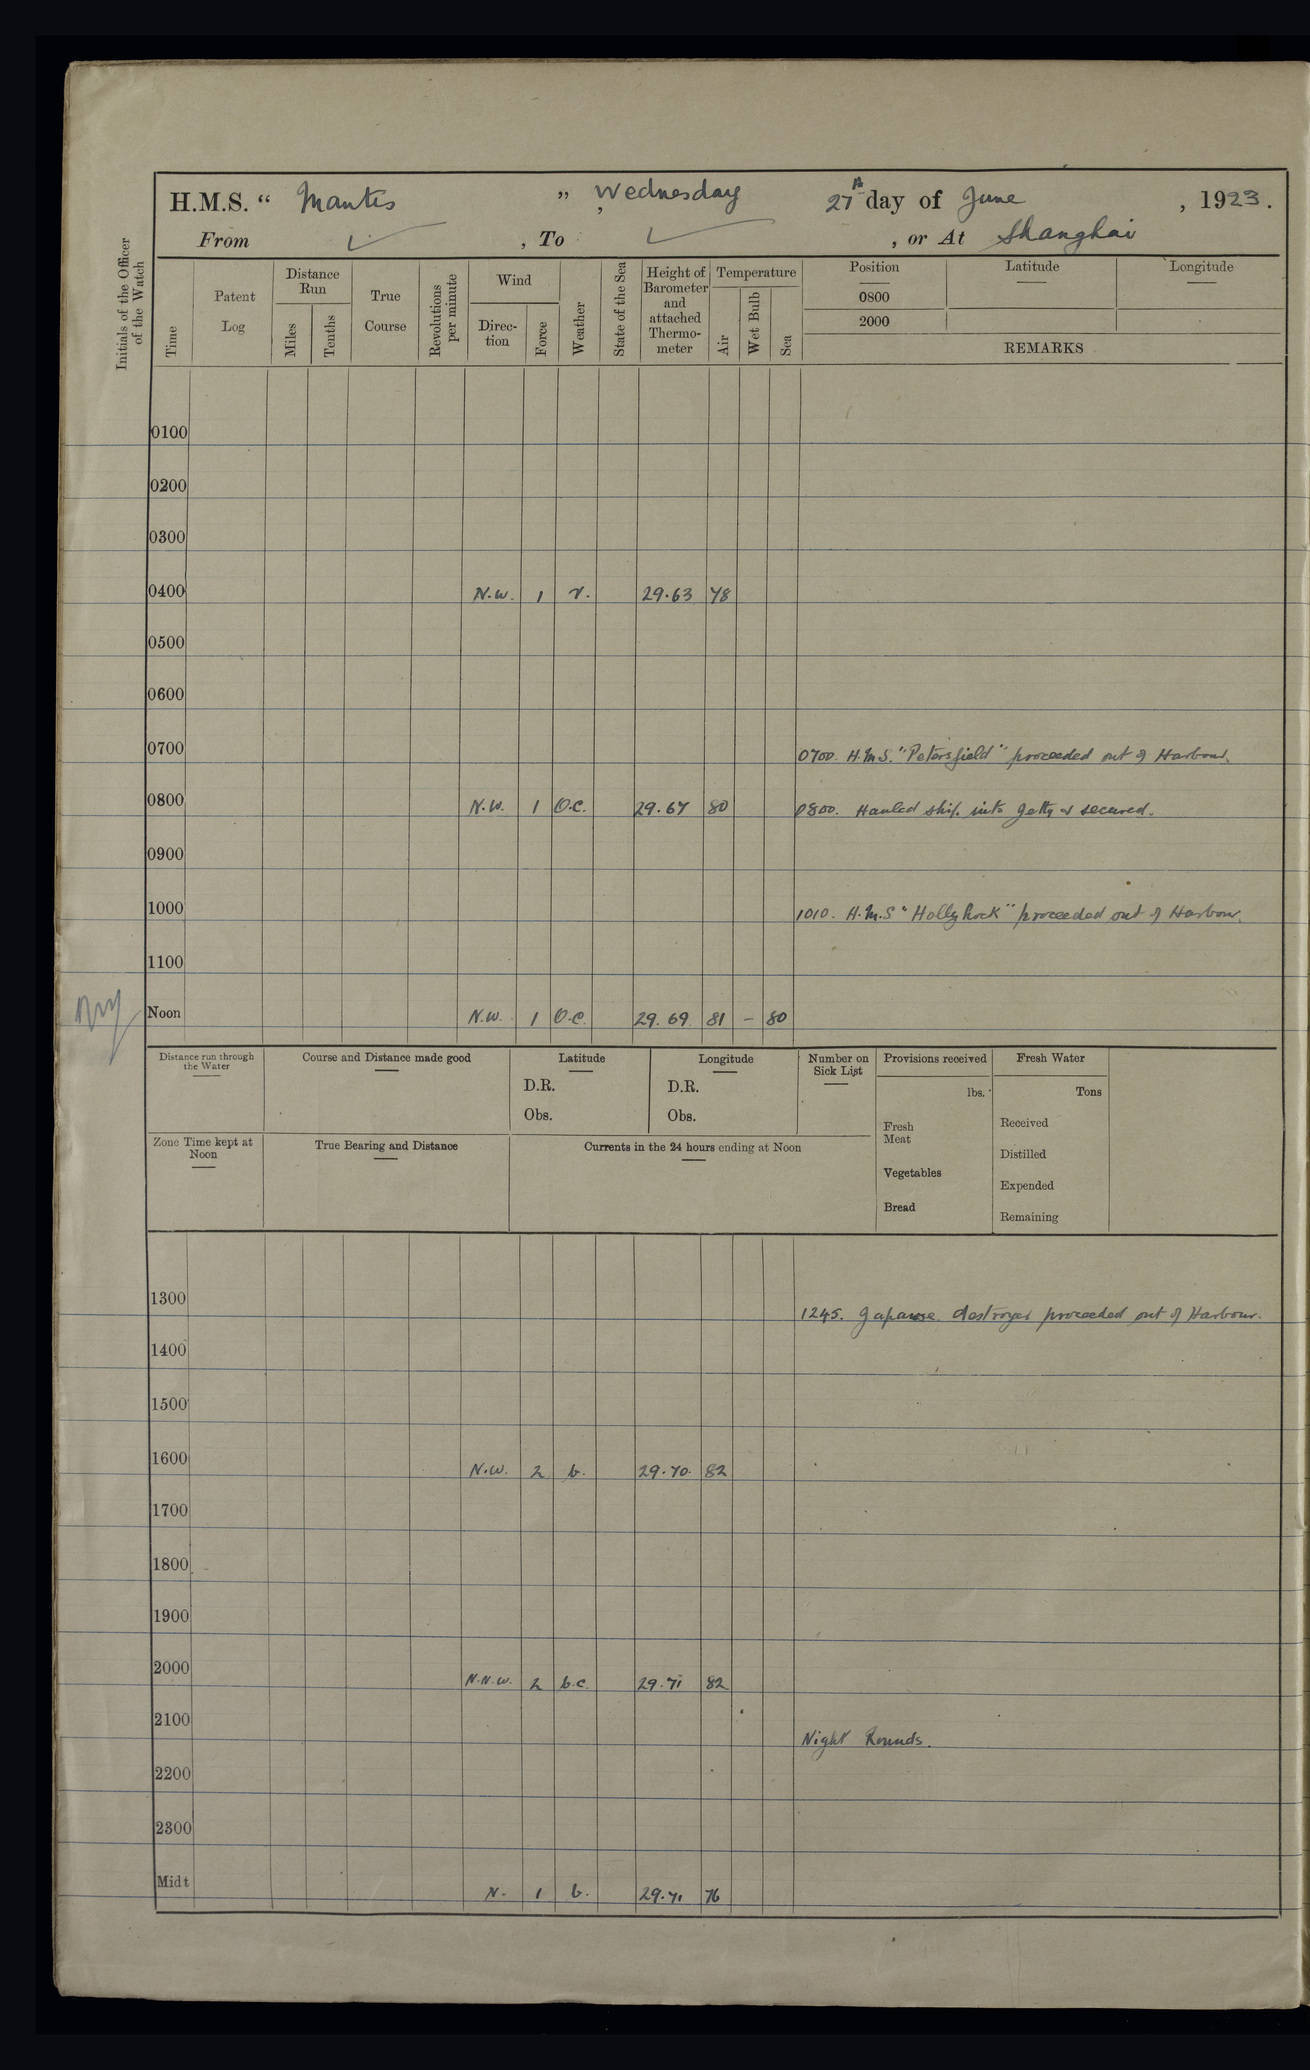 H.M.S. “ Mantis ” , Wednesday 27th day of June , 1923.
From ✓ , To ✓ , or At Shanghai
Initials of the Officer of the Watch
Time
Patent Log
Distance Run
Miles
Tenths
True Course
Revolutions per minute
Wind
Direc-tion
Force
Weather
State of the Sea
Height of Barometer and attached Thermo-meter
Temperature
Air
Wet Bulb
Sea
Position Latitude Longitude
0800
2000
REMARKS
0100
0200
0300
0400 N.W. 1 r. 29.63 78
0500
0600
0700 0700. H.M.S. "Petersfield" proceeded out of Harbour.
0800 N.W. 1 O.C. 29.67 80 0800. Hauled ship into Jetty & secured.
0900
1000 1010. H.M.S "Hollyhock" proceeded out of Harbour.
1100
Noon N.W. 1 O.C. 29.69 81 – 80
Distance run through the Water
Course and Distance made good
Latitude
D.R.
Obs.
Longitude
D.R.
Obs.
Number on Sick List
Provisions received
lbs.
Fresh Meat
Vegetables
Bread
Fresh Water
Tons
Received
Distilled
Expended
Remaining
Zone Time kept at Noon
True Bearing and Distance
Currents in the 24 hours ending at Noon
1300 1245. Japanese destroyer proceeded out of Harbour.
1400
1500
1600 N.W. 2 b. 29.70 82
1700
1800
1900
2000 N.N.W. 2 b.c. 29.71 82
2100 Night Rounds.
2200
2300
Midt N. 1 b. 29.71 76